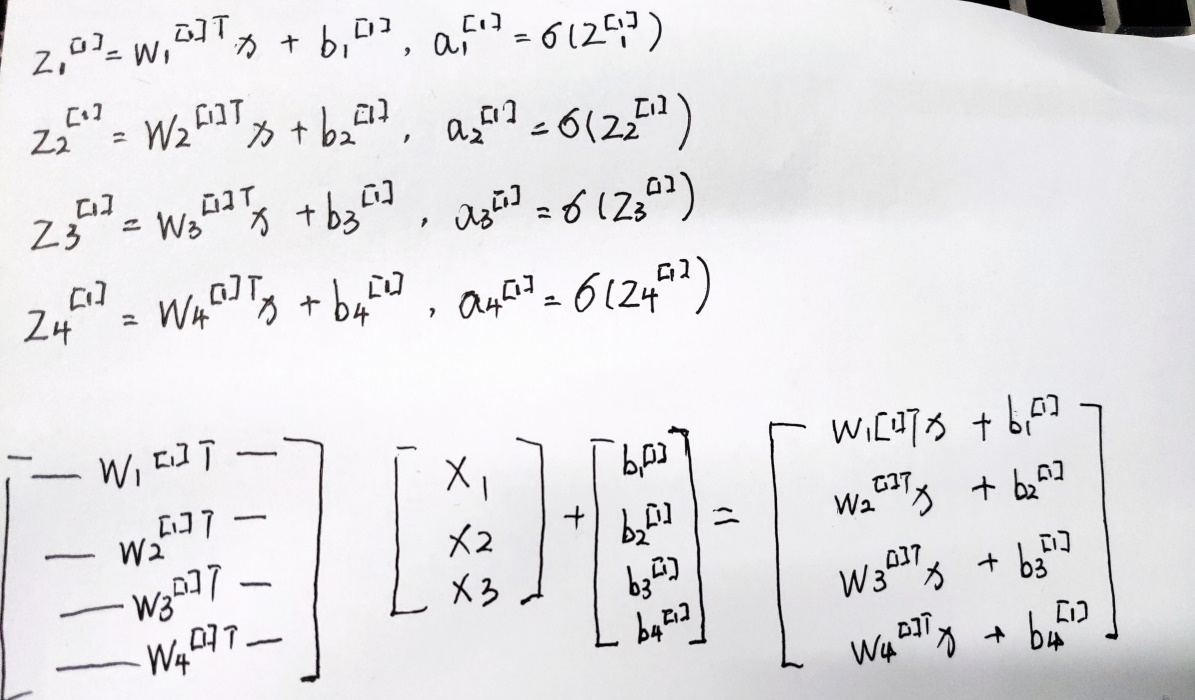 z₁^[1] = w₁^[1]T x + b₁^[1], a₁^[1] = σ(z₁^[1])
z₂^[1] = w₂^[1]T x + b₂^[1], a₂^[1] = σ(z₂^[1])
z₃^[1] = w₃^[1]T x + b₃^[1], a₃^[1] = σ(z₃^[1])
z₄^[1] = w₄^[1]T x + b₄^[1], a₄^[1] = σ(z₄^[1])
[— w₁^[1]T —; — w₂^[1]T —; — w₃^[1]T —; — w₄^[1]T —] [x₁; x₂; x₃] + [b₁^[1]; b₂^[1]; b₃^[1]; b₄^[1]] = [w₁^[1]T x + b₁^[1]; w₂^[1]T x + b₂^[1]; w₃^[1]T x + b₃^[1]; w₄^[1]T x + b₄^[1]]